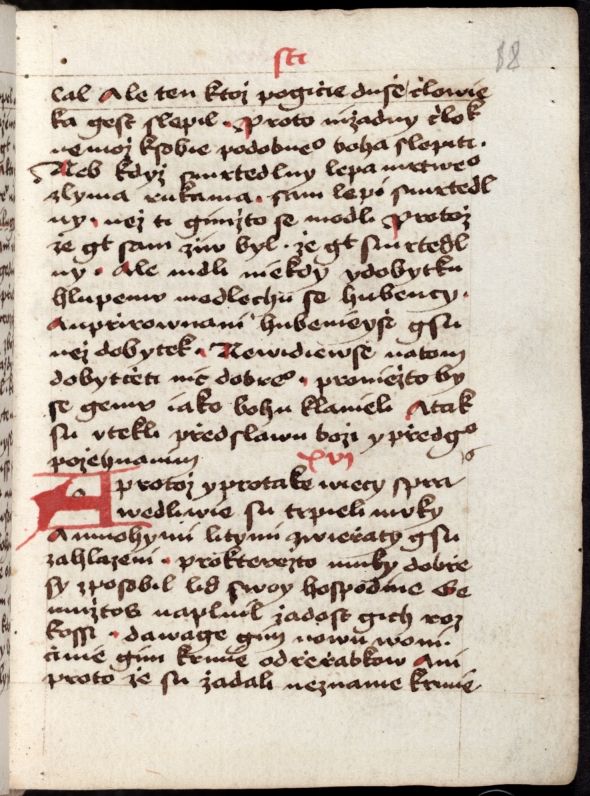 sti
18
cal Ale ten ktoz pogicie dusse czlowie
ka gest slepil · Proto nizadny czlok
nemoz k sobie podobneº boha slepiti ·
Neb kdyz smrtedlny lepa mrtweº
zlyma rukama · sam lepi smrtedl
ny · nez ti gimzto se modli Protoz
ze gt sam ziw byl · ze gt smrtedl
ny · Ale mdli niekdy y dobytku
hlupemu modlechu se hubency ·
A u prirownani hubenieyssi gsu
nez dobytek · Newidiewsse na tom
dobytceti nic dobreº · promiezto by
se gemu iako bohu klanieli A tak
su vtekli przed slawu bozi y przed geº
pozehnanim xvi
A protoz y protake wiecy spra
wedliwie su trpieli muky
A mnohymi litymi zwieraty gsu
zahlazeni · pro kterezto muky dobrze
sy zposobil lid swoy hospodine Ge
muzto s naplnil zadost gich roz
kossi · dawage gim nowu woni ·
cinie gim krmie od rerabkow Ani
proto ze su zadali neznamé krmie